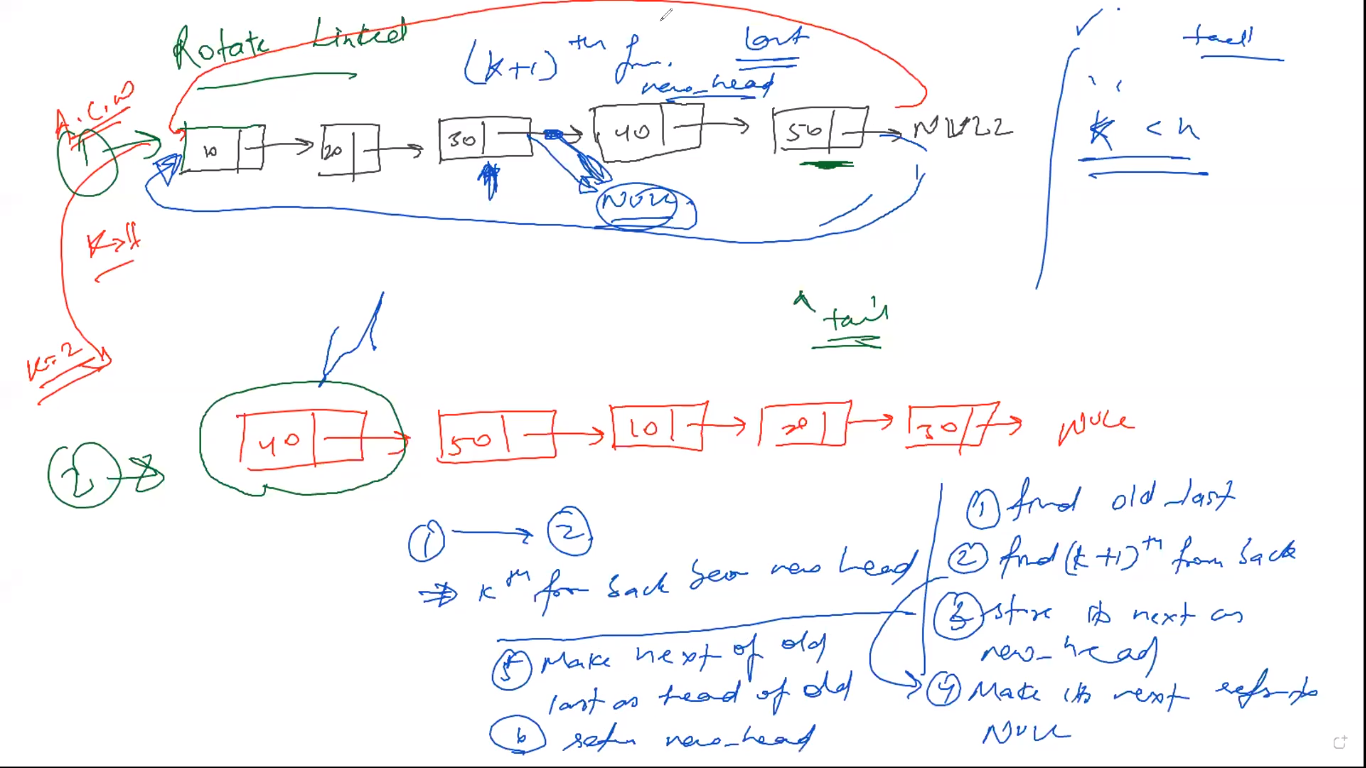 Rotate Linked
(k+1)th from last
new_head
A.C.W
1
10 20 30 40 50 NULL
NULL
K=2
tail
k < n
tail
2
40 50 10 20 30 NULL
1 → 2
⇒ kth from back new head
1 find old_last
2 find (k+1)th from back
3 store its next as
new_head
4 Make its next refer to
NULL
5 Make next of old
last as head of old
6 return new_head